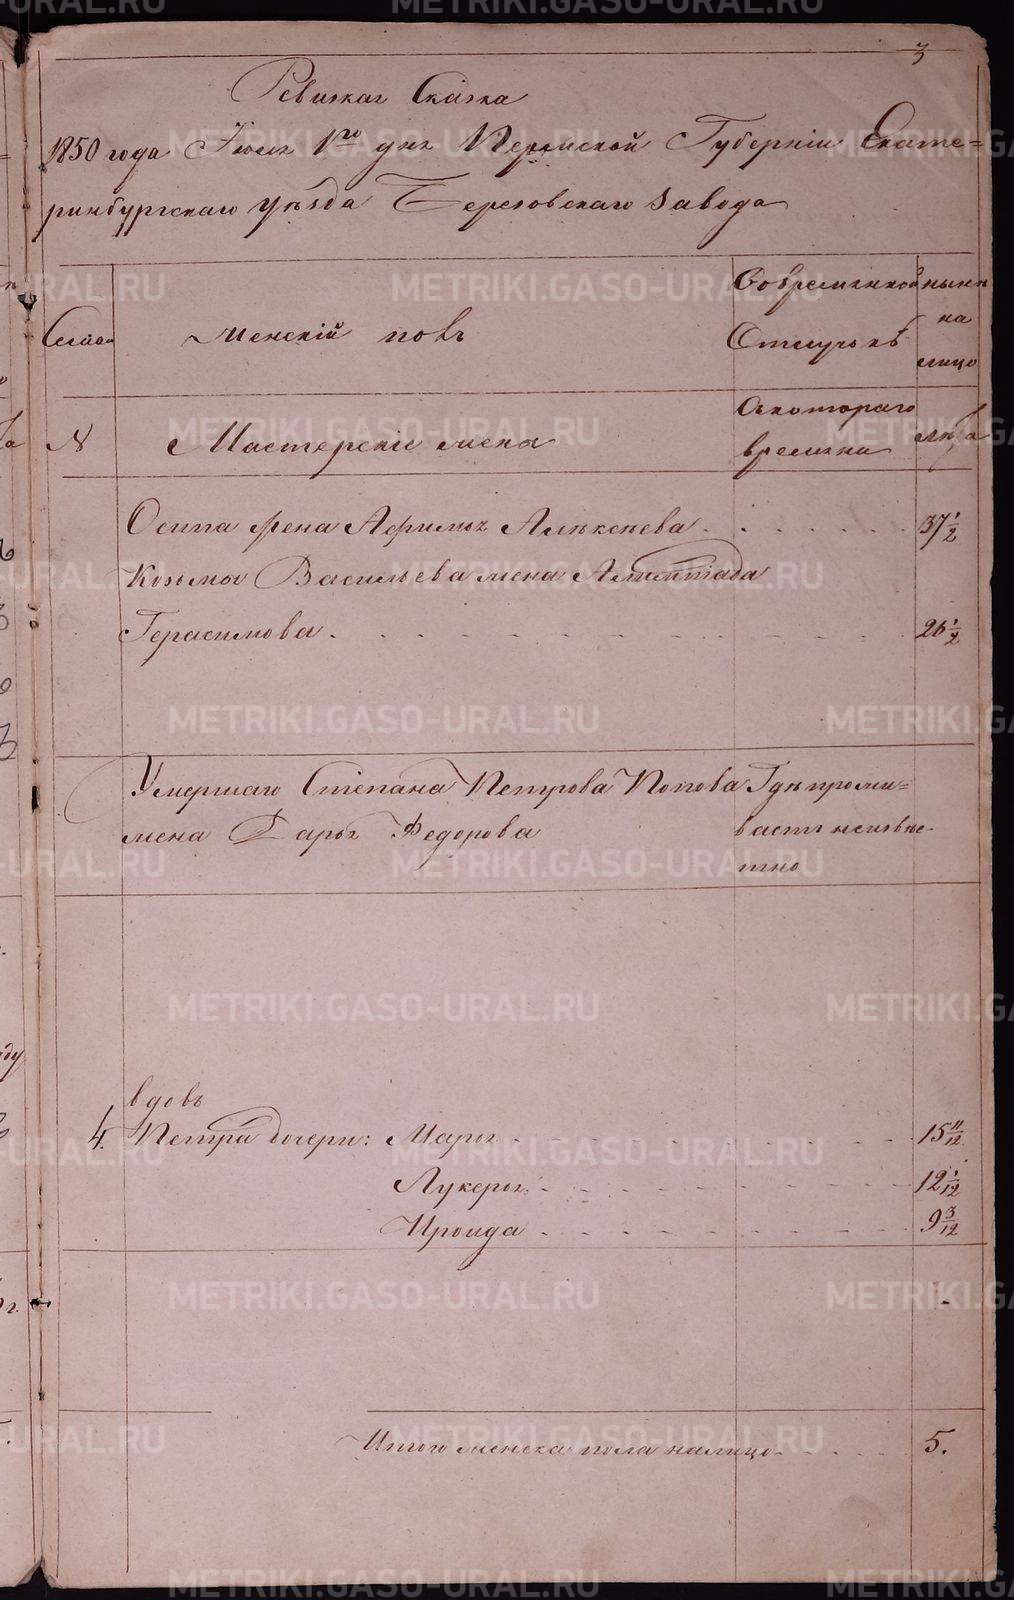 3
Ревизкая Сказка
1850 года Іюля 1го дня Пермской Губерніи Екате=
ринбургскаго Уѣзда Березовскаго завода
Семьи
Женскій полъ
Во временной
Отлучкѣ
нынѣ
на
лицо
N
Мастерскіе жена
Съкотораго
времяни
лѣта
Осипа жена Афимья Алѣксеева 37 1/2
Козьма Васильева жена Алимпіада
Герасимова 26 1/2
Умершаго Степана Петрова Попова
жена Дарья Федорова
Гдѣ прожи=
ваетъ неизвѣс-
тно
вдовъ
4. Петра дочери: Марья 15 11/12
Лукерья 12 1/12
Ироида 9 3/12
Итого женска пола налицо 5.
METRIKI.GASO-URAL.RU